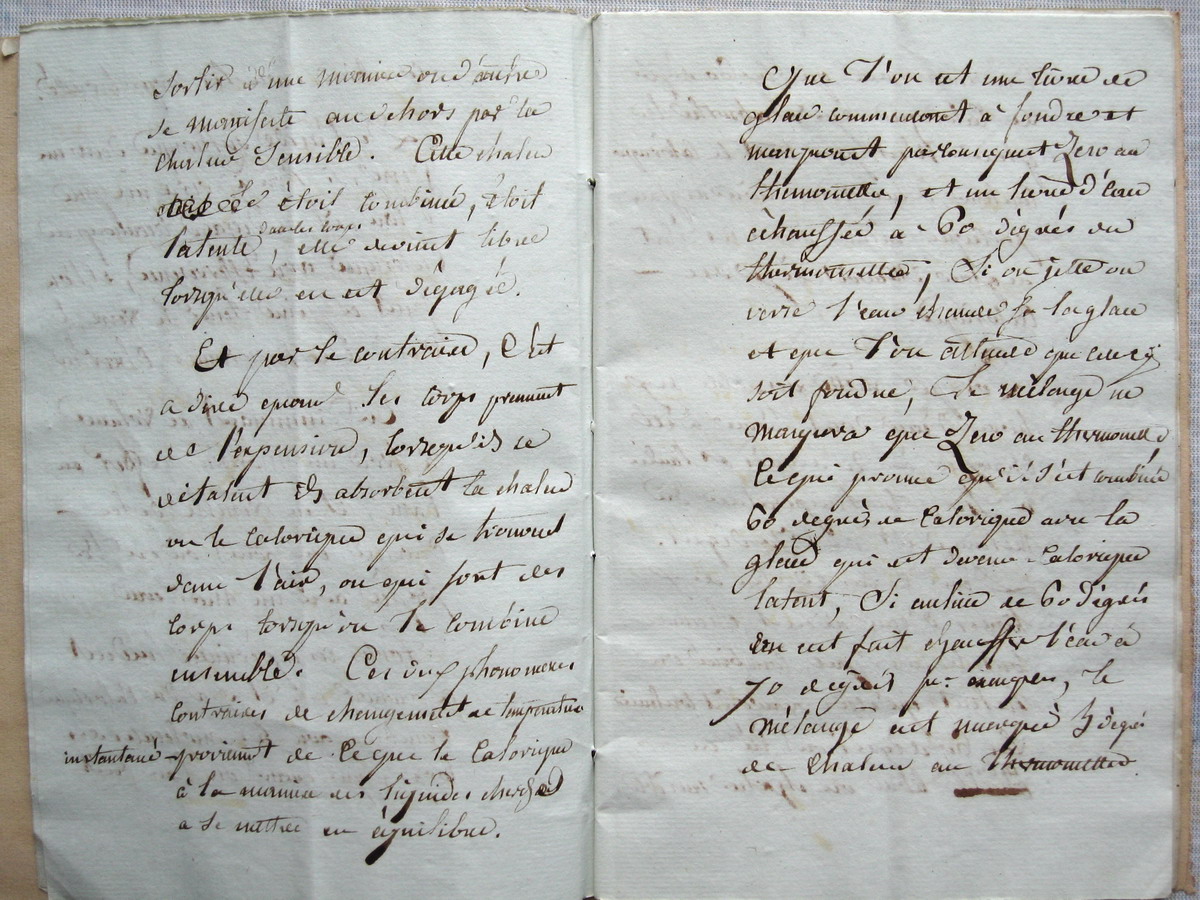 Sortir d'une maniere ou d'autre
se manifeste au dehors par la
chaleur sensible. Cette chaleur
étoit combinée, étoit
dans les corps
latente, elle devient libre
lorsqu'elle en est dégagée.
Et par le contraire, C'est
a dire quand les corps prennent
de l'expension, lorsqu'ils se
dilatent ils absorbent la chaleur
ou le calorique qui se trouvent
dans l'air, ou qui sort des
corps lorsqu'on les combine
ensemble. Ces deux phenomenes
contraires de changement de temperature
instantané proviennent de ce que le calorique
à la maniere des liquides cherche
a se mettre en équilibre.
Que l'on ait une livre de
glace commencant à fondre et
marquant par consequent Zero au
thermometre, et une livre d'eau
échauffée à 60 dégrés du
thermomettre, Si on jette ou
verse l'eau chaude sur la glace
et que l'on attende que celle cy
soit fondue, Le mélange ne
marquera que Zero au thermometre
Ce qui prouve qu'il s'est combiné
60 degrés de Calorique avec la
glace qui est devenu calorique
latent, Si au lieu de 60 dégrés
on eut fait chauffer l'eau à
70 degrés pr. exemple, le
mélange eut marqué 5 dégrés
de chaleur au thermomettre